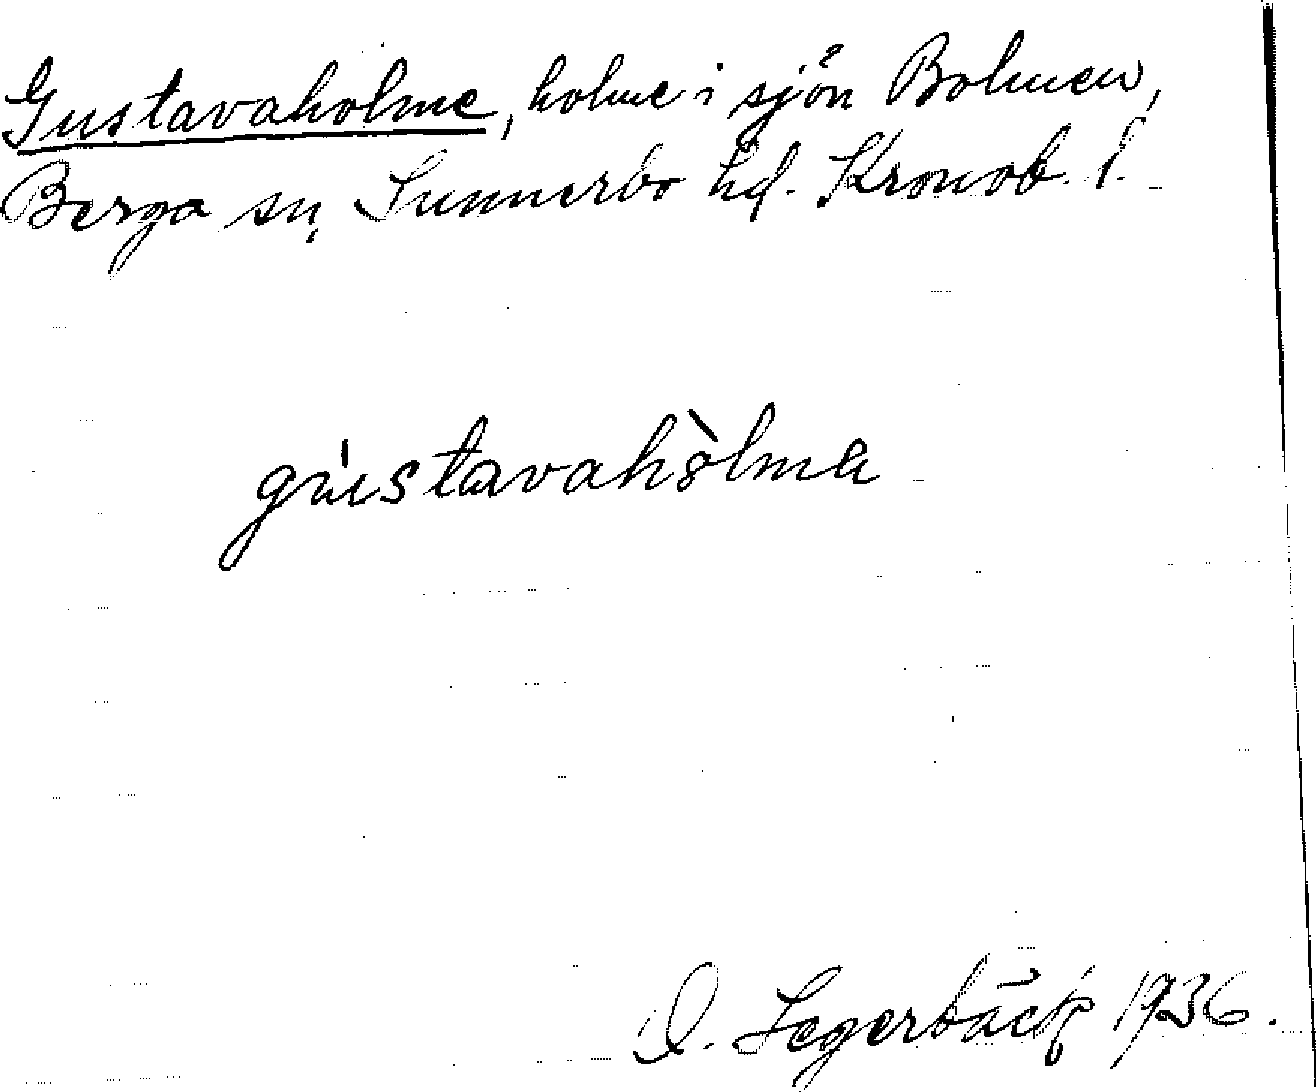 Gustavaholme, holme i sjön Bolmen,
Berga sn, Sunnerbo hd. Kronob. l.
gústavahòlma
O. Segerbäck 1936.